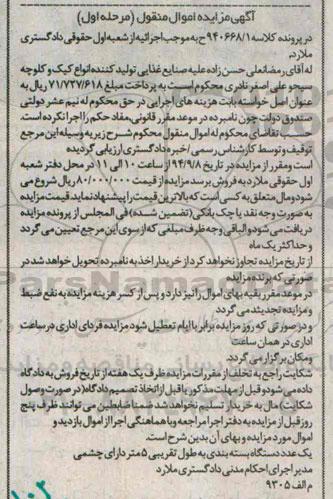 آگهی مزایده اموال منقول (مرحله اول)
در پرونده کلاسه ۹۴۰۶۶۸/۱ح به موجب اجرائیه از شعبه اول حقوقی دادگستری
ملارد.
له آقای رمضانعلی حسن زاده علیه صنایع غذایی تولید کننده انواع کیک و کلوچه
سیحو علی اصغر نادری محکوم اسـت به پرداخت مبلغ ۷۱/۷۲۷/۶۱۸ ریال به
عنوان اصل خواسته بابت هزینه های اجرایی در حق محکوم له نیم عشر دولتی
صندوق دولت چون نامبرده در موعد مقرر قانونی، مفاد حکم را اجرا نکرده است.
حسب تقاضای محکوم له اموال منقول محکوم شـرح زیر به وسیله این مرجع
توقیف و توسط کارشناس رسمی /خبره دادگستری ارزیابی گردیده
است و مقرر از مزایده در تاریخ ۹۴/۹/۸ از ساعت ۱۰ الی ۱۱ در محل دفتر شعبه
اول حقوقی ملارد به فروش برسد مزایده از قیمت ۸۰/۰۰۰/۰۰۰ ریال شروع می
شود و مال متعلق به کسی است که بالاترین قیمت را پیشنهاد نماید قیمت مزایده
به صورت وجه نقد یا چک بانکی (تضمین شـده) فی المجلس از برنده مزایده
دریافت می شود و الباقی وجه ظرف مبلغی که از سوی این مرجع تعیین می گردد
و حداکثر یک ماه
از تاریخ مزایده تجاوز نخواهد کرد از خریدار اخذ به نامبرده تحویل خواهد شد در
صورتی که برنده مزایده
در موعد مقرر بقیه بهای اموال را نپردازد و پس از کسر هزینه مزایده به نفع ضبط
و مزایده تجدید می گردد
و در صورتی که روز مزایده برابر با ایام تعطیل شود مزایده فردای اداری در ساعت
اداری در همان ساعت
و مکان برگزار می گردد.
شکایت راجع به تخلف از مقررات مزایده ظرف یک هفته از تاریخ فروش به دادگاه
داده می شود و قبل از مهلت مذکور یا قبل از اتخاذ تصمیم دادگاه (در صورت وصول
شکایت) مال به خریدار تسلیم نخواهد شد ضمنا متقاضیان می توانند ظرف پنج
روز قبل از مزایده به دفتر اجرا مراجعه و با هماهنگی اجرا از اموال بازدید و
اموال مورد مزایده و بهای آن بدین شرح است.
یک عدد دستگاه بسته بندی به طول تقریبی ۵ متر دارای چشمی
مدیر اجرای احکام مدنی دادگستری ملارد
م الف ۹۳۰۵